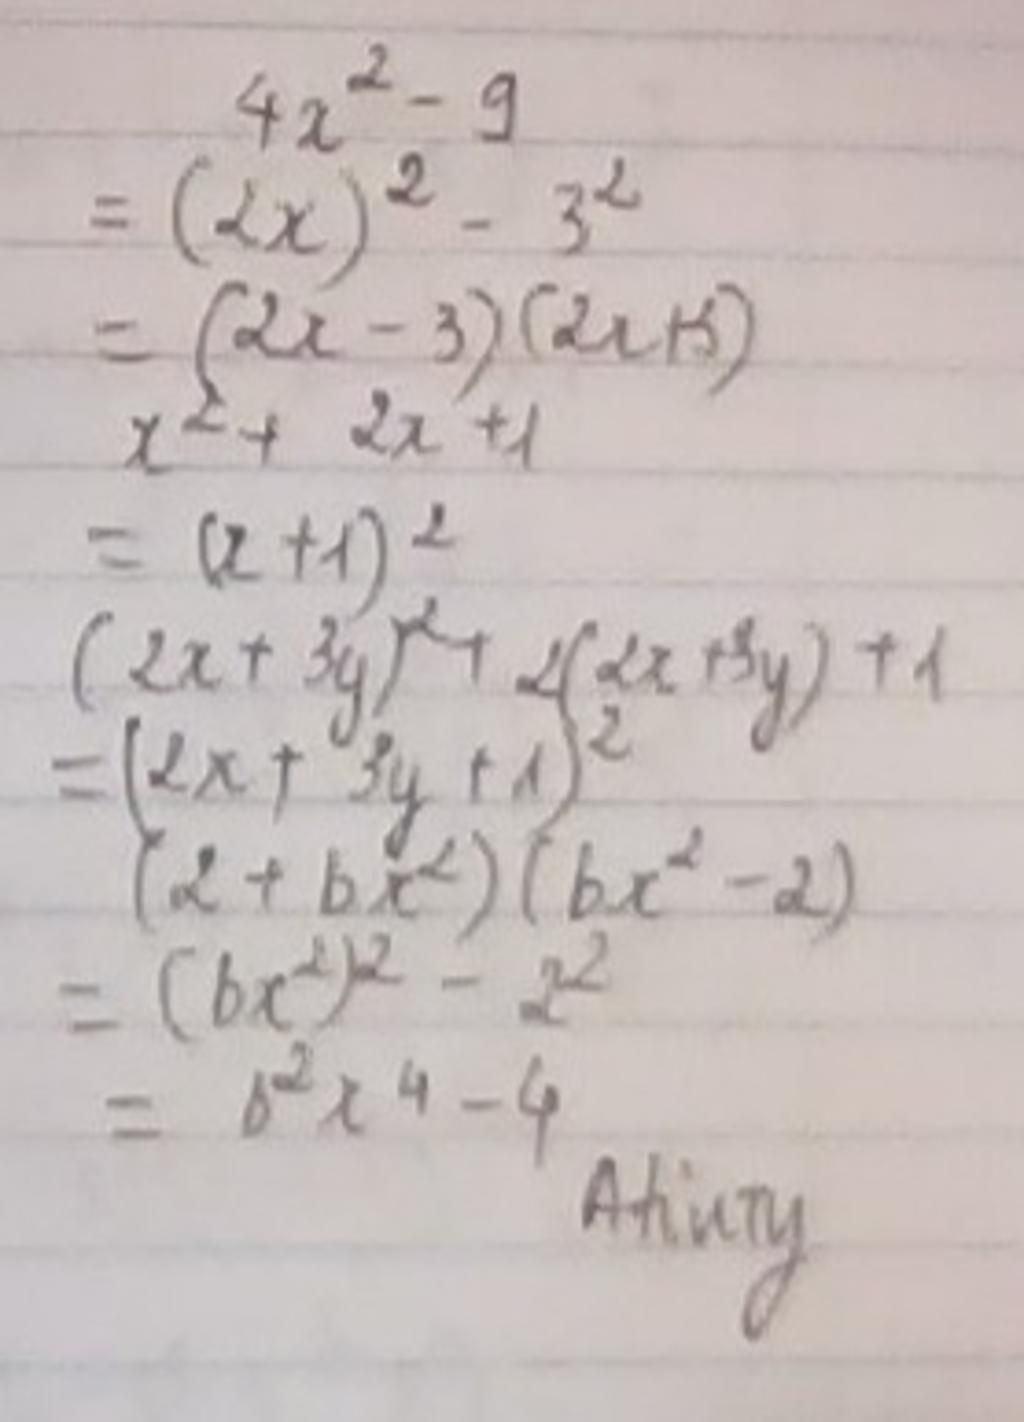 4x² - 9
= (2x)² - 3²
= (2x - 3)(2x+3)
x² + 2x +1
= (x +1)²
(2x + 3y)² + 2(2x +3y) +1
= (2x + 3y +1)²
(2 + bx²)(bx² - 2)
= (bx²)² - 2²
= b²x⁴ - 4